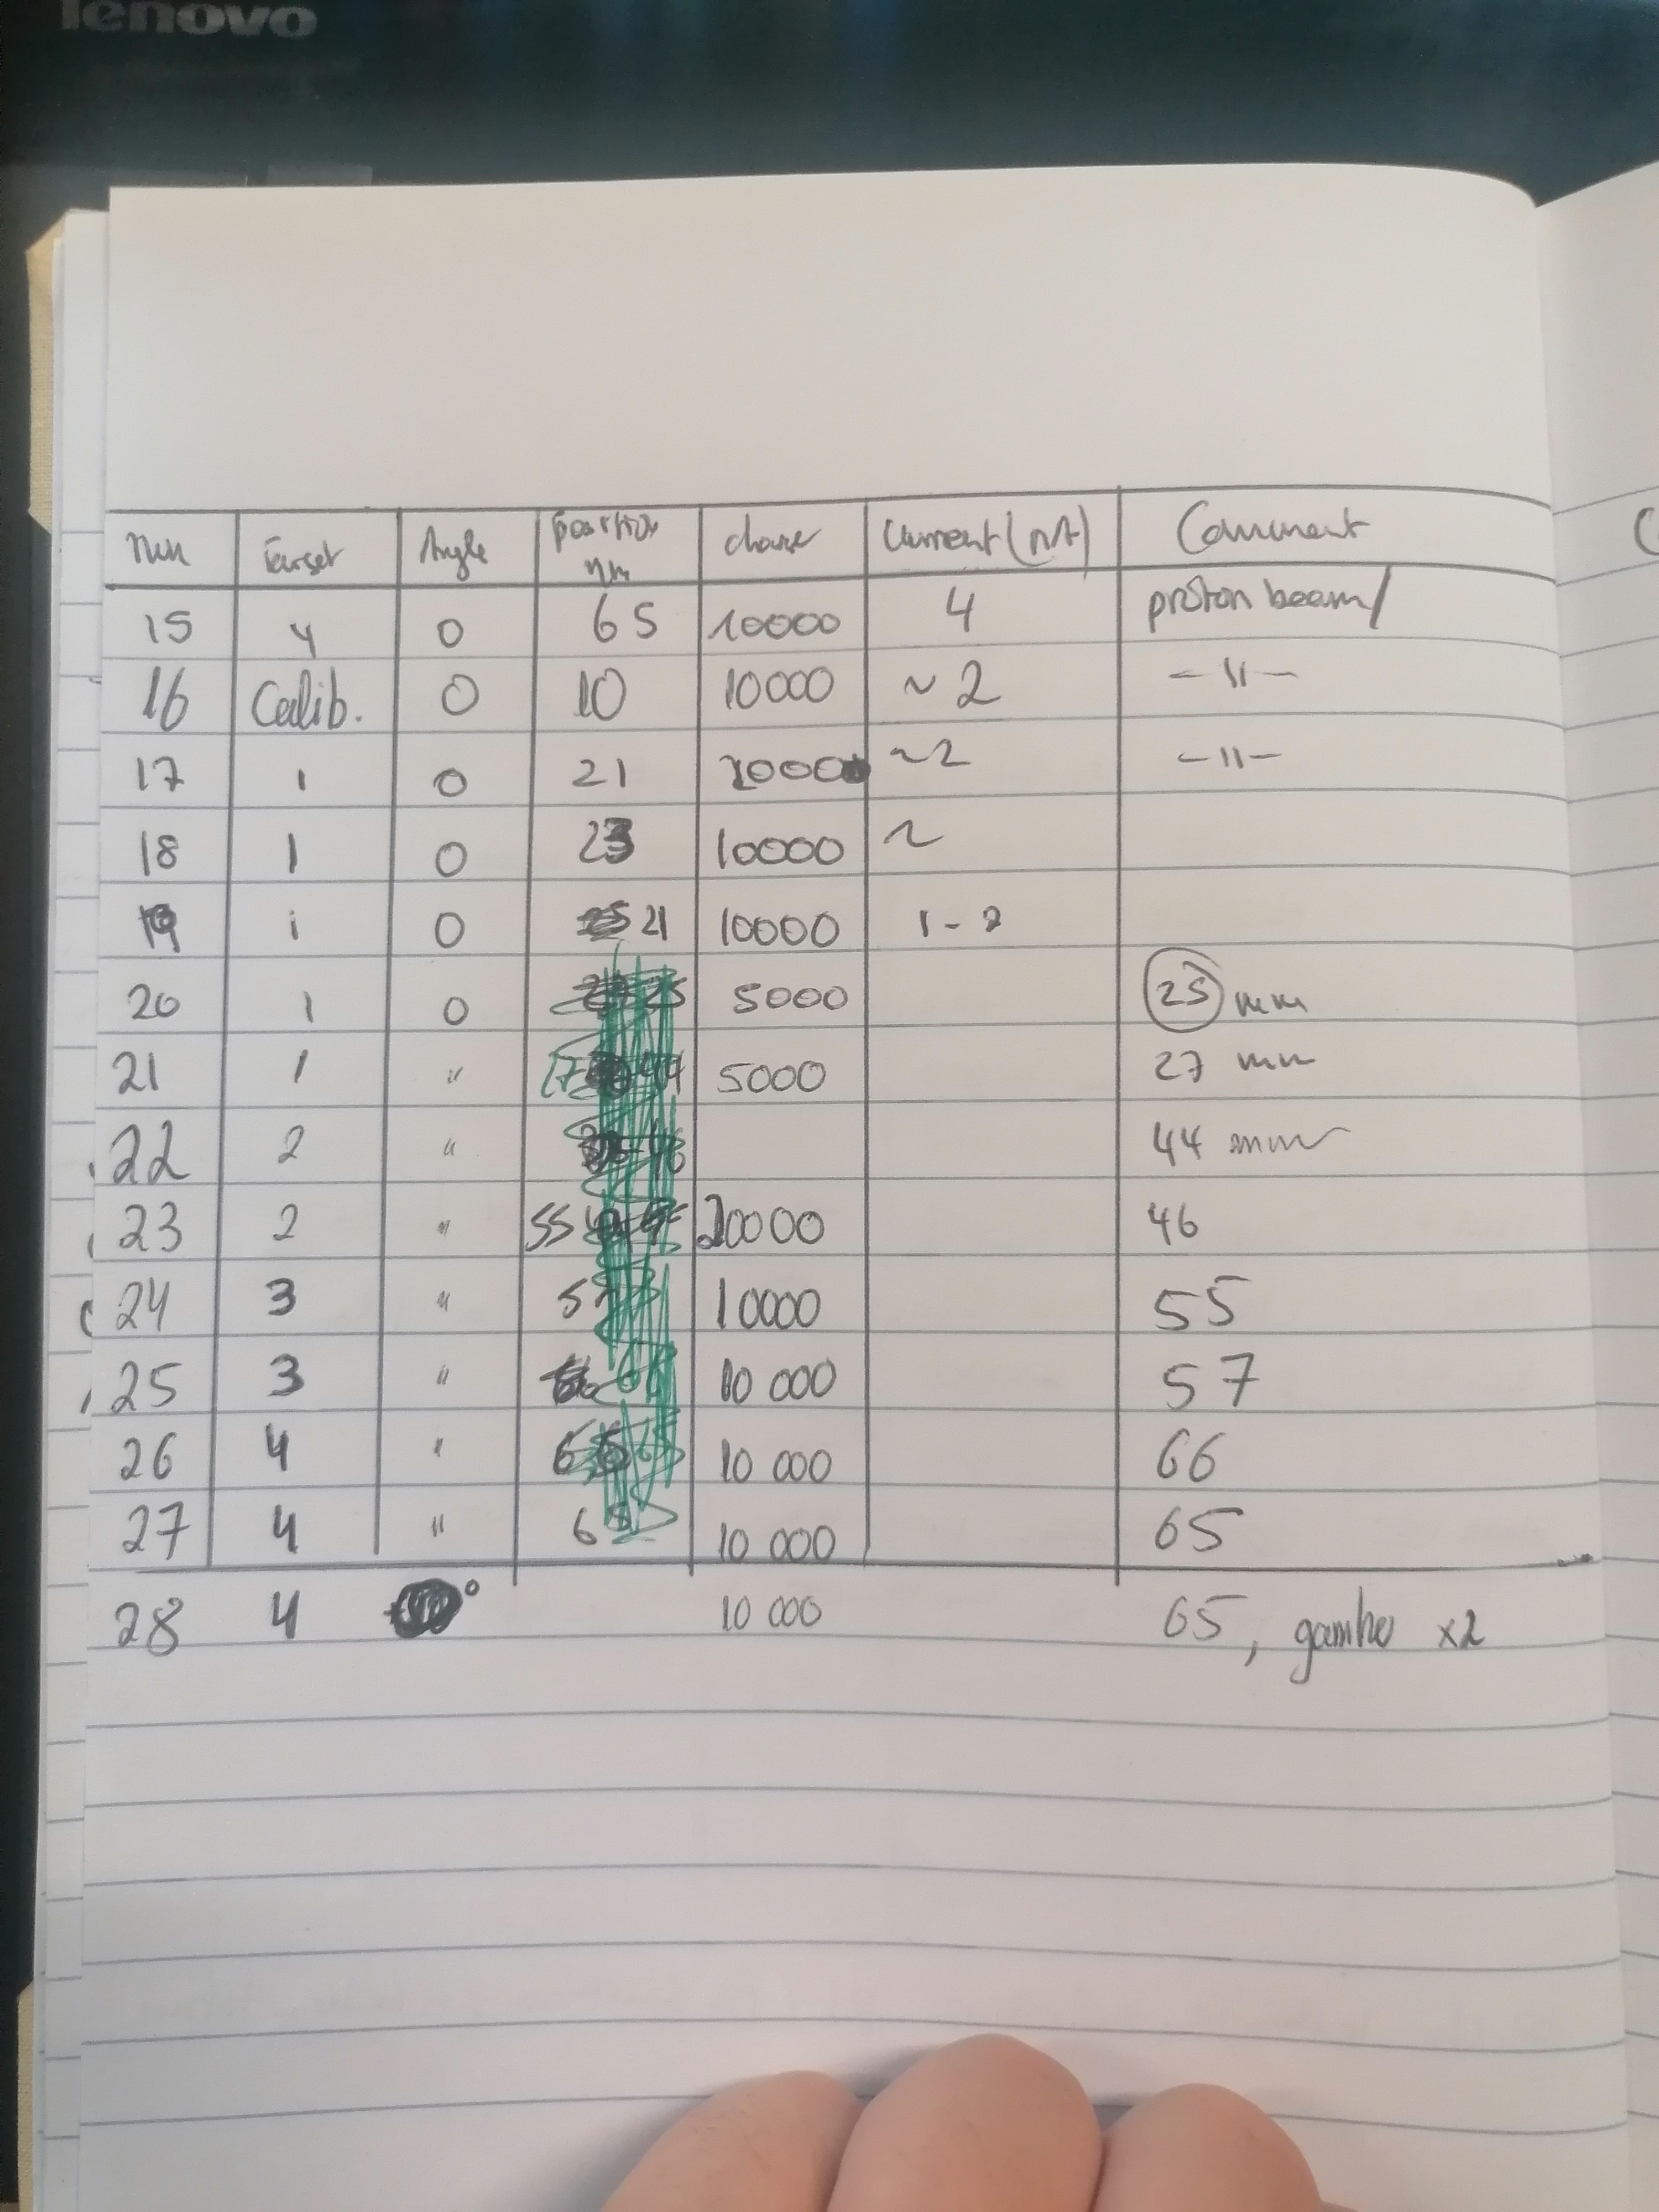 lenovo
run Target Angle position charge current (nA) Comment
mm
15 4 0 65 10000 4 proton beam/
16 Calib. 0 10 10000 ~2 -11-
17 1 0 21 10000 ~2 -11-
18 1 0 23 10000 ~
19 1 0 21 10000 1-2
20 1 0 5000 25 mm
21 1 " 5000 27 mm
22 2 " 44 mm
23 2 " 55 20000 46
24 3 " 10000 55
25 3 " 10 000 57
26 4 " 10 000 66
27 4 " 10 000 65
28 4 ° 10 000 65, x2